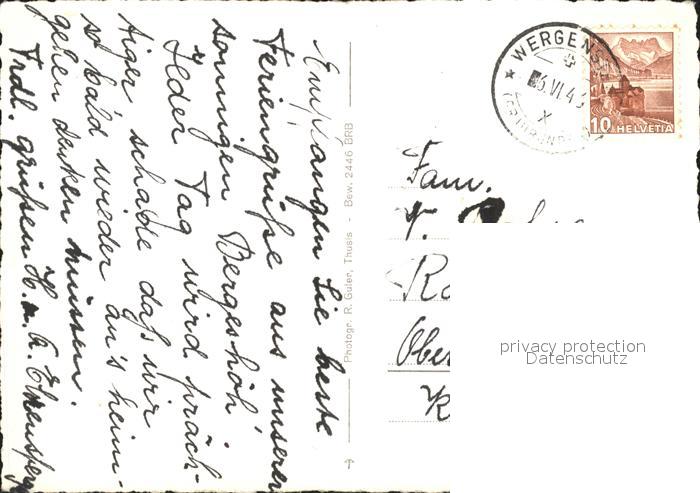 Empfangen Sie beste
Feriengrüße aus unserer
sonnigen Bergeshöh'
Jeder Tag wird präch-
tiger schade daß wir
so bald wieder an's heim-
gehen denken müssen.
Frdl. grüßen H. u. A.
Photogr. R. Guler, Thusis - Bew. 2446 BRB
WERGENS
6.VI.43
10 HELVETIA
Fam.
Ober
privacy protection
Datenschutz